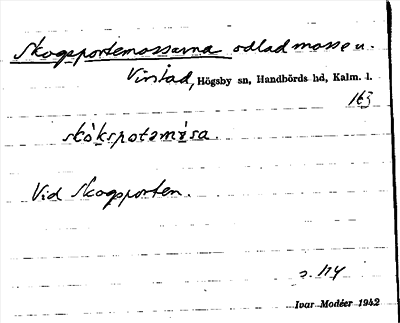 Skogsportemossarna odlad mosse u.
Virstad, Högsby sn, Handbörds hd, Kalm. l.
163
skòkspotemåsa.
Vid Skogsporten.
s. 114
Ivar Modéer 1942